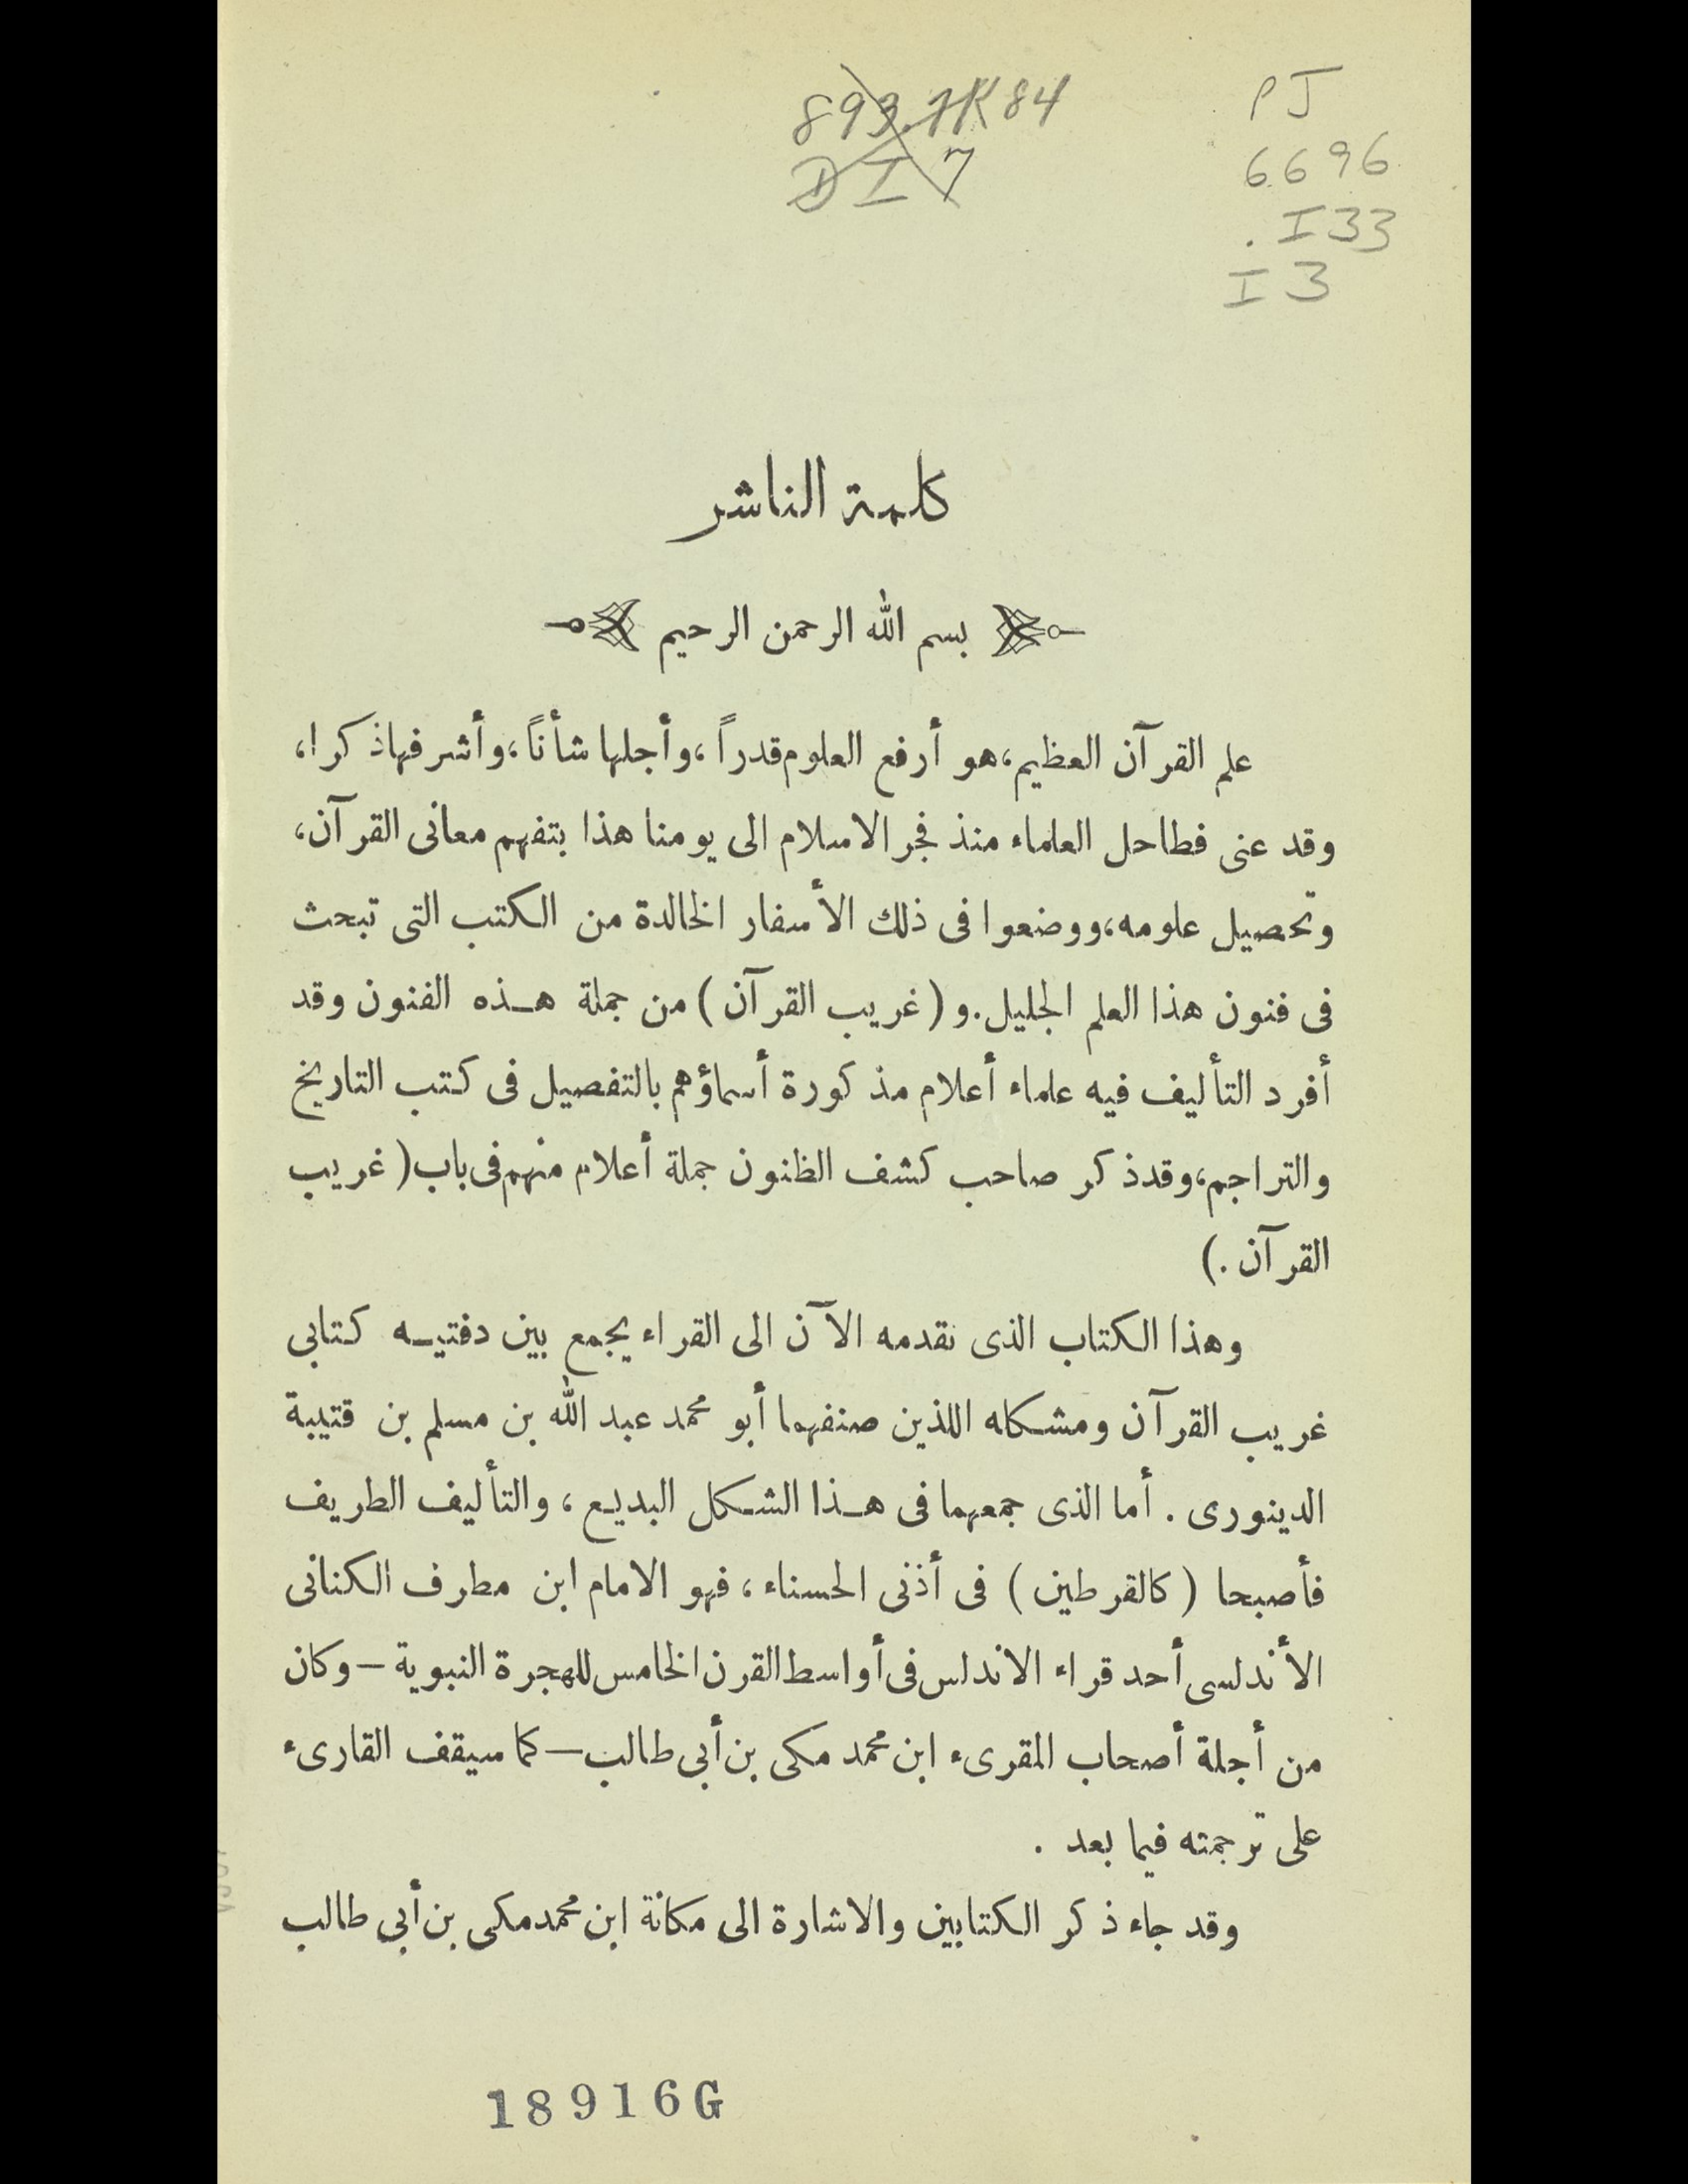 893.7K84
DI7
PJ
6696
.I33
I3
كلمة الناشر
بسم الله الرحمن الرحيم
علم القرآن العظيم، هو أرفع العلوم قدراً، وأجلها شأناً، وأشرفها ذكرا،
وقد عنى فطاحل العلماء منذ فجر الاسلام الى يومنا هذا بتفهم معانى القرآن،
وتحصيل علومه، ووضعوا فى ذلك الأسفار الخالدة من الكتب التى تبحث
فى فنون هذا العلم الجليل. و (غريب القرآن) من جملة هـذه الفنون وقد
أفرد التأليف فيه علماء أعلام مذكورة أسماؤهم بالتفصيل فى كتب التاريخ
والتراجم، وقد ذكر صاحب كشف الظنون جملة أعلام منهم فى باب (غريب
القرآن .)
وهذا الكتاب الذى نقدمه الآن الى القراء يجمع بين دفتيـه كتابي
غريب القرآن ومشكله اللذين صنفهما أبو محمد عبد الله بن مسلم بن قتيبة
الدينورى . أما الذى جمعهما فى هـذا الشكل البديع ، والتأليف الطريف
فأصبحا (كالقرطين) فى أذنى الحسناء ، فهو الامام ابن مطرف الكنانى
الأندلسى أحد قراء الاندلس فى أواسط القرن الخامس للهجرة النبوية – وكان
من أجلة أصحاب المقرىء ابن محمد مكى بن أبي طالب – كما سيقف القارىء
على ترجمته فيما بعد .
وقد جاء ذكر الكتابين والاشارة الى مكانة ابن محمد مكى بن أبي طالب
18916G